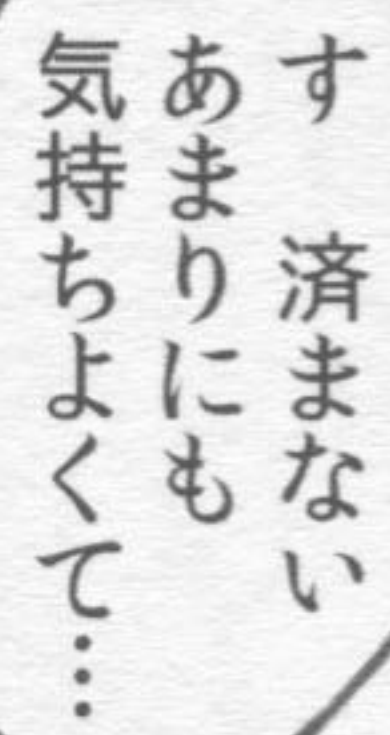 す　済まない
あまりにも
気持ちよくて…